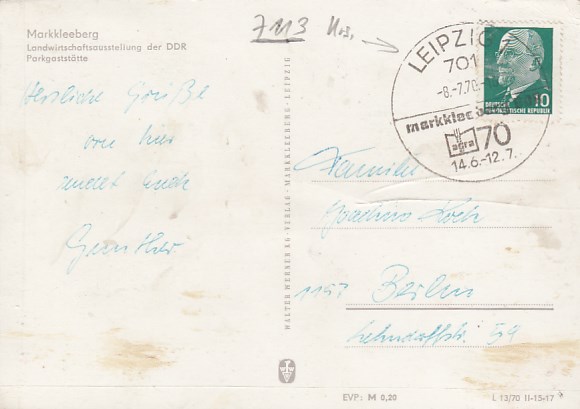 Markkleeberg
Landwirtschaftsausstellung der DDR
Parkgaststätte
7113
LEIPZIG
701
-8.-7.70.
markklee
agra 70
14.6.-12.7.
DEUTSCHE 10
DEMOKRATISCHE REPUBLIK
Herzliche Grüße
von hier
sendet Euch
Günther
WALTER WERNER KG-VERLAG - MARKKLEEBERG-LEIPZIG
Familie
Joachim Koch
1157 Berlin
54
EVP: M 0,20
L 13/70 II-15-17